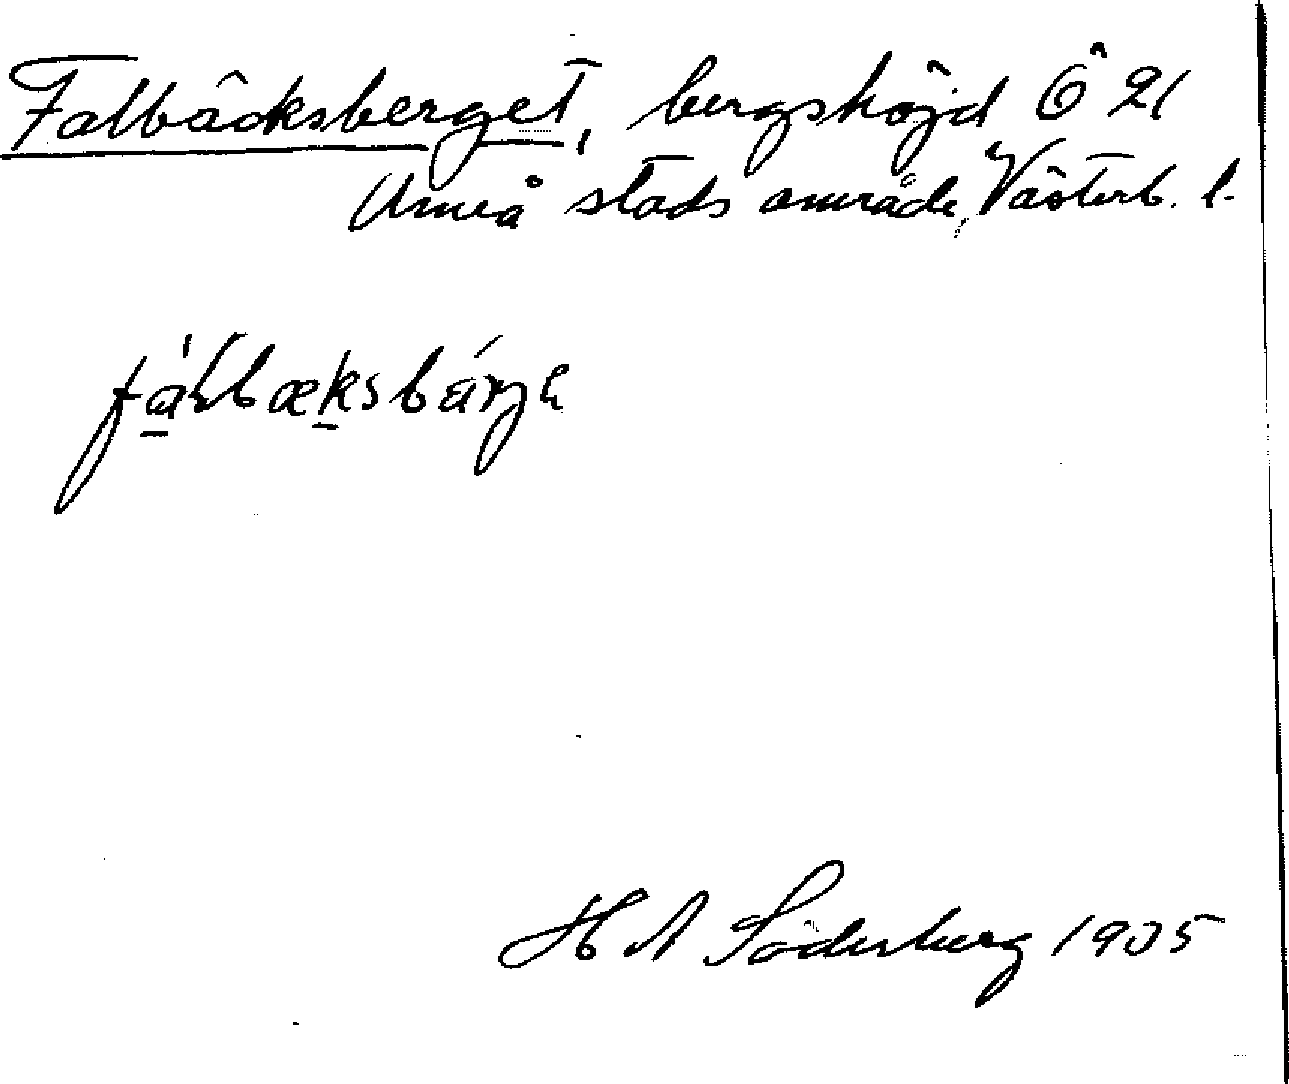 Falbäcksberget, bergshöjd Ö 21
Umeå stads område, Västerb. l.
H A Söderberg 1905